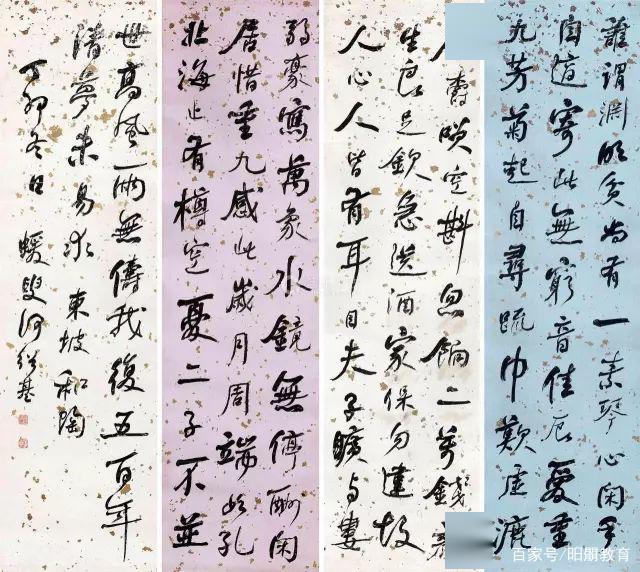 誰謂淵明貧尚有一素琴心閑手
自適寄此無窮音佳辰愛重
九芳菊起自尋疏巾歎虛漉
爵咲空斟忽餉二萬錢
生良足欽急送酒家保勿違故
人心人皆有耳目夫子曠與婁
弱豪寫萬象水鏡無停酬閑
居惜重九感此歲月周端如孔
北海止有樽空憂二子不並
世高風兩無儔我復五百年
清夢未易求 東坡和陶
丁卯冬日 蝯叟何紹基
百家号/昍朤教育